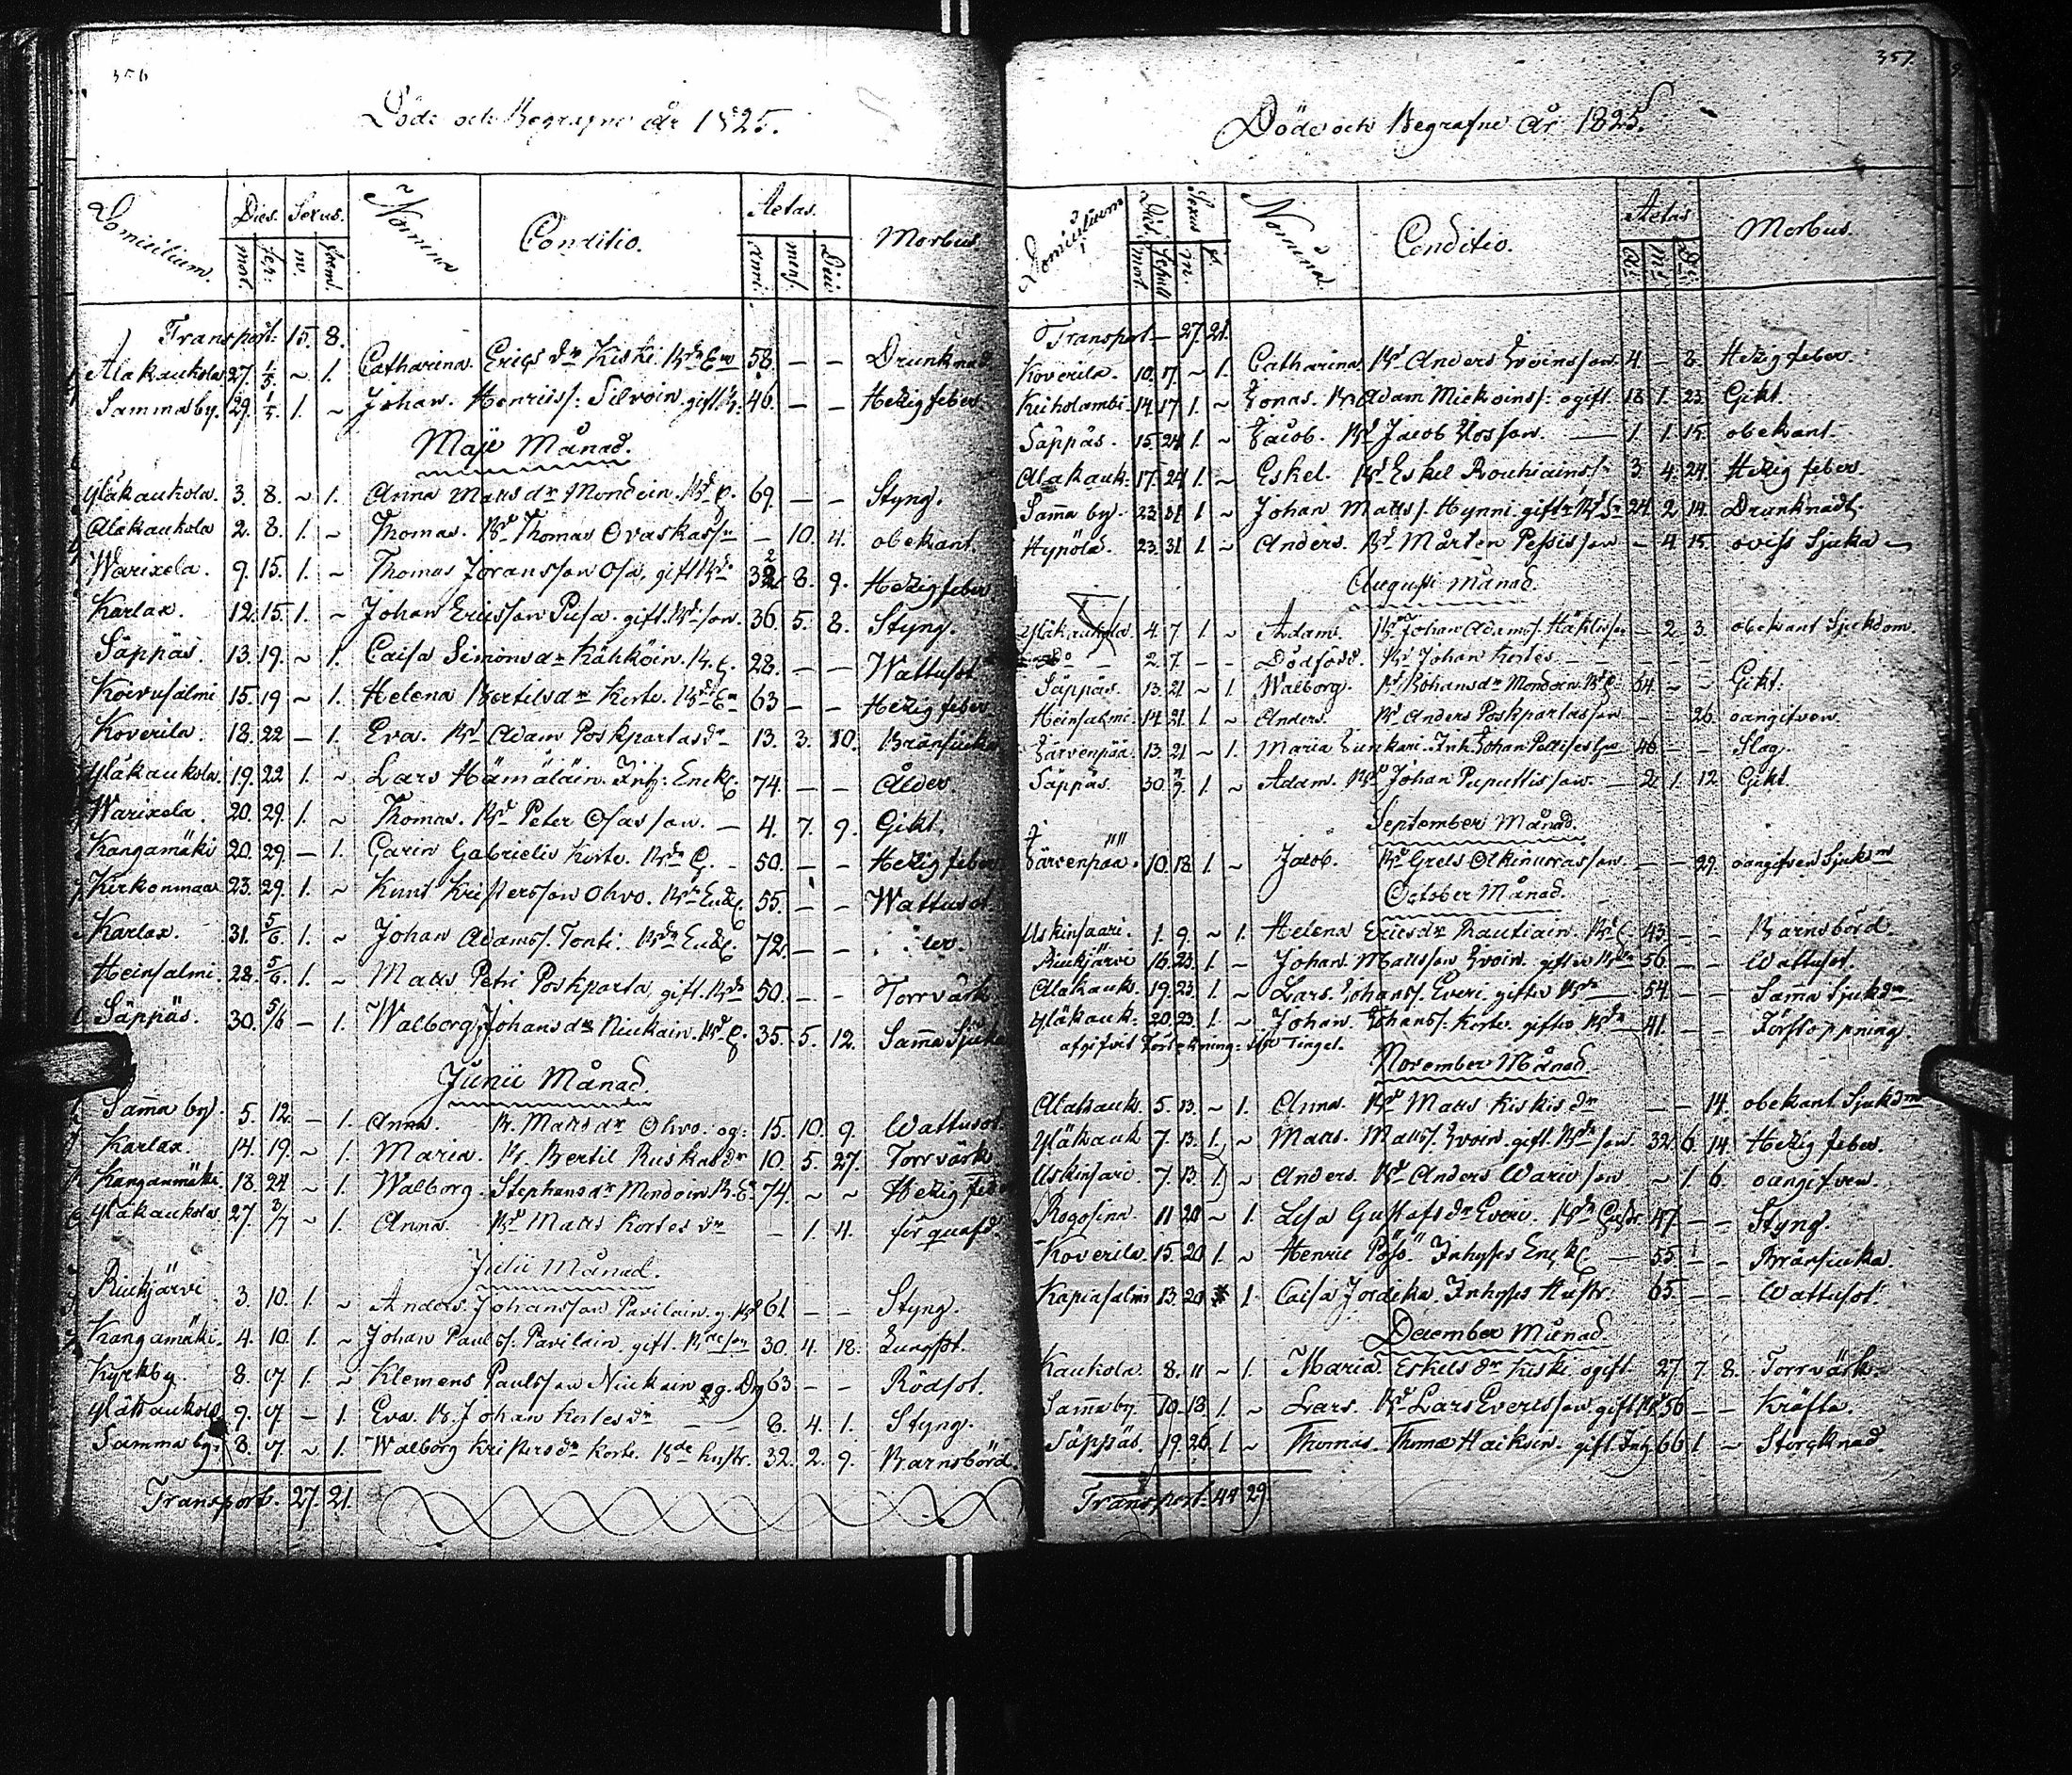 356
Döde och Begrafne år 1825.
Domicilium. Dies. Sexus. Nomina Conditio. Aetas. Morbus
mort. sep: m. foem. anni. mens. Dies
Transport. 15. 8.
Alakaukola 27. 1/5. ~ 1. Catharina. Erics dr Kiski. 58. — — Drunknad
Sammaby. 29. 1/5. 1. ~ Johan. Henriss: Silvoin. gift 46. — — Hetzig feber.
Maji Månad.
Yläkaukola. 3. 8. ~ 1. Anna Matts dr Mondoin. 69. — — Styng.
Alakaukola 2. 8. 1. ~ Thomas. Bd Thomas Ovaskas — 10. 4. obekant.
Warixela. 9. 15. 1. ~ Thomas Joransson Osa, gift 32 8. 9. Hetzig feber
Karlax. 12. 15. 1. ~ Johan Ericsson Pusa. gift. Bd son. 36. 5. 8. Styng.
Säppäs. 13. 19. ~ 1. Caisa Simons dr Kähköin. 28. — — Wattusot
Koivusalmi 15. 19 ~ 1. Helena Bertils dr Korte. 63 — — Hetzig feber
Koverila. 18. 22 — 1. Eva. Bd Adam Poskpartas dr 13. 3. 10. Bränsiuka
Yläkaukola. 19. 22 1. ~ Lars Hämäläin. Inh: Enck 74. — — Ålder.
Warixela. 20. 29. 1. ~ Thomas. Bd Peter Osas son. — 4. 7. 9. Gikt.
Kangamäki 20. 29. — 1. Carin Gabrielis Korte. 50. — — Hetzig feber
Kirkonmaa 23. 29. 1. ~ Knut Kristersson Ohvo. 55. — — Wattusot
Karlax. 31. 5/6 1. ~ Johan Adams. Tonti. 72. — —
Heinsalmi. 28. 5/6. 1. ~ Matts Petri Poskparta, gift. 50. — — Torrvärk
Säppäs. 30. 5/6 — 1. Walborg Johans dr Niukain. 35. 5. 12. Samma Sjuka
Junii Månad.
Samma by. 5. 12. — 1. Anna. B. Matts dr Ohvo. og: 15. 10. 9. Wattusot
Karlax. 14. 19. ~ 1. Maria. B. Bertil Ruskas dr 10. 5. 27. Torrvärk
Kanganmäki. 18. 24 ~ 1. Walborg. Stephans dr Mondoin 74. ~ ~ Hetzig feber
Yläkaukola 27. 3/7 ~ 1. Anna. Bd Matts Kortes dr — 1. 4. förquafd.
Julii Månad.
Riukjärvi 3. 10. 1. ~ Anders. Johansson Pavilain. g 61 — — Styng.
Kangamäki. 4. 10. 1. ~ Johan Pauls. Pavilain. gift. 30. 4. 18. Lungsot.
Kyrkby. 8. 17 1. ~ Klemens Paulsson Niukain 63 — — Rödsot.
Yläkaukola 9. 17 — 1. Eva. B. Johan Kortes dr — 8. 4. 1. Styng.
Samma by. 8. 17 ~ 1. Walborg Kristers dr Korte. Bde hustr. 32. 2. 9. Barnsbörd.
Transport. 27. 21.
357
Döde och Begrafne år 1825.
Domicilium Dies Sexus Nomina Conditio. Aetas Morbus.
mort. Sepult m. f. A: M: D:
Transport — 27. 21.
Koverila. 10. 17. ~ 1. Catharina Bd Anders Ivoinsson 4 — 8. Hetzig feber.
Kuiholambi. 14. 17 1. ~ Jonas. Bd Adam Mickoins: ogift 18 1. 23. Gikt.
Säppäs. 15. 24 1. ~ Jacob. Bd Jacob — 1. 1. 15. obekant.
Alakauk. 17. 24 1. ~ Eskel. Bd Eskel Rouhiains 3. 4. 24. Hetzig feber.
Samma by. 23. 31 1 ~ Johan Matts. Hynni. gift 24. 2. 14. Drunknadt.
Hypölä. 23. 31 1. ~ Anders. Bd Mårten Pessisson — 4. 15. oviss Sjuka
Augusti Månad.
Yläkaukola 4. 7 1. ~ Adam. Bd Johan Adams. — 2. 3. obekant Sjukdom.
Do — 2. 7. — — Dödfödd. Bd Johan Kortes — — —
Säppäs. 13. 21 ~ 1. Walborg. Bd Johans dr Mondoin 54 — — Gikt.
Heinsalmi. 14. 21. 1. ~ Anders. Bd Anders Poskpartasson — — 26. oangifven.
Järvenpää. 13. 21 ~ 1. Maria Junkari. Inh. Johan 46 — — Slag.
Säppäs. 30. 1. ~ Adam. Bd Johan Puputtisson. — 2 1. 12. Gikt.
September Månad.
Järvenpää. 10. 18. 1. ~ Jacob. Bd Grels Olkinuorasson. — — 29. oangifven Sjukdm
October Månad.
Uskinsaari. 1. 9. ~ 1. Helena Erics dr Rautiain. 43. — — Barnsbörd.
Riukjärvi 16. 23. 1. ~ Johan Mattsson Ivoin. gifter 56. — — Wattusot.
Alakauk. 19. 23. 1. ~ Lars. Johans. Everi. gifter 54. — — Samma Sjukdm.
Yläkauk. 20. 23. 1. ~ Johan. Johans. Korte. gifter 41. — — Förstoppning
afgifvit
November Månad
Alakauk. 5. 13. ~ 1. Anna. Bd Matts Kiskis dr — — 14. obekant Sjukdm
Yläkauk 7. 13. 1. ~ Matts. Matts. Ivoin. gift. Bd son. 32. 6. 14. Hetzig feber.
Uskinsari. 7. 13. 1. ~ Anders. Bd Anders Waris son. ~ 1. 6. oangifven.
Rogosina. 11 20 ~ 1. Lisa Gustafs dr Everi. 47. — — Styng.
Koverila. 15. 20 1. ~ Henric Pösö. Inhyses — 55 — Bränsiuka.
Kapiasalmi 13. 20 1. Caisa Jordika. Inhyses Hustr: 65. — — Wattusot.
December Månad.
Kaukola. 8. 11 ~ 1. Maria. Eskels dr Kiski. ogift 27 7 8. Torrvärk.
Samma by 10. 18. 1. ~ Lars. Bd Lars Everisson. gift 56 — — Kräfta.
Säppäs. 19. 26. 1 ~ Thomas. Thomæ Haikoin. gift. Inh 66 1 ~
Transport. 44 29